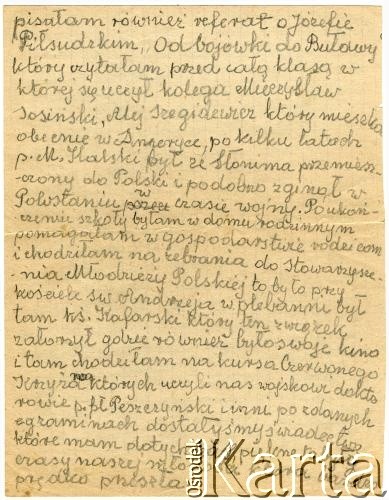 pisałam również referat o Józefie
Piłsudzkim, „Od bojówki do Buławy
który czytałam przed całą klasą w
której sę uczył kolega Mieczysław
Josiński, Alej Szegidewicz który mieszka
obecnie w Ameryce, po kilku latach
p. M. Halski był ze Słonima przemiesz-
-czony do Polski i podobno zginął w
Powstaniu w czasie wojny. Po ukoń-
czeniu szkoły byłam w domu rodzinnym
pomagałam w gospodarstwie rodzicom
i chodziłam na zebrania do Stowarzysze-
-nia Młodzieży Polskiej to było przy
kościele św. Andrzeja w plebanni był
tam ks. Kafarski który ten związek
założył gdzie również było swoje kino
i tam chodziłam na kursa Czerwonego
Krzyża na których uczyli nas wojskowi dokto
rowie p. pł. Peszczynski i inni po zdanych
egzaminach dostałyśmy świadectwa
które mam dotychczas piękne były
czasy naszej
prędko
Ośrodek
Karta